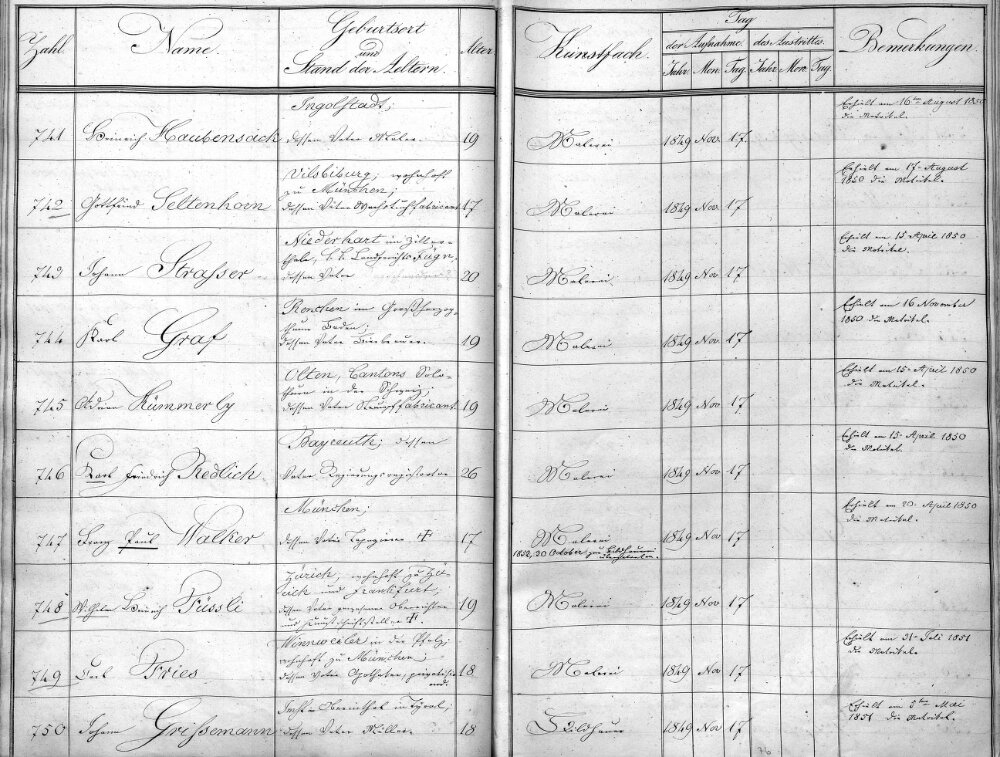 Zahl Name. Geburtsort und Stand der Aeltern. Alter Kunstfach. Tag der Aufnahme. des Austrittes. Bemerkungen.
Jahr Mon. Tag. Jahr Mon. Tag.
Ingolstadt; Erhielt am 16ten August 1850
die Matrikel.
741 Heinrich Haubensack dessen Vater Maler 19 Malerei 1849 Nov. 17.
Vilsbiburg; wohnhaft Erhielt am 17. August
zu München; 1850 die Matrikel.
742 Gottfried Seltenhorn dessen Vater Wachstuchfabricant 17 Malerei 1849 Nov. 17
Niederhart im Ziller- Erhielt am 15. April 1850
thale, k. k. Landgerichts Fügn, die Matrikel.
743 Johann Strasser dessen Vater 20 Malerei 1849 Nov 17
Renchen im Großherzog- Erhielt am 16 November
thum Baden; 1850 die Matrikel.
744 Karl Graf dessen Vater Bierbrauer. 19 Malerei 1849 Nov 17
Olten, Cantons Solo- Erhielt am 15. April 1850
thurn in der Schweiz; die Matrikel.
745 Adam Kümmerly dessen Vater Strumpffabricant 19 Malerei 1849 Nov 17
Bayreuth; dessen Erhielt am 15. April 1850
die Matrikel.
746 Karl Friedrich Redlich Vater Regierungsregistrator 26 Malerei 1849 Nov 17
München; Erhielt am 20. April 1850
die Matrikel.
747 Franz Paul Walker dessen Vater Tapezierer † 17 Malerei 1849 Nov 17
1852, 20 October zur Bildhauerei übergetreten.
Zürich, wohnhaft zu Zü-
rich und Frankfurt,
748 Wilhelm Heinrich Füssli dessen Vater gewesener Oberrichter 19 Malerei 1849 Nov 17
und Kunstschriftsteller †.
Winnweiler in der Pfalz, Erhielt am 31. Juli 1851
wohnhaft zu München; die Matrikel.
749 Carl Fries dessen Vater Apotheker, privatisirend. 18 Malerei 1849 Nov 17
Imst-Oberinthal in Tyrol, Erhielt am 5ten Mai
750 Johann Grissemann dessen Vater Müller. 18 Bildhauer 1849 Nov 17 1851 die Matrikel.
76